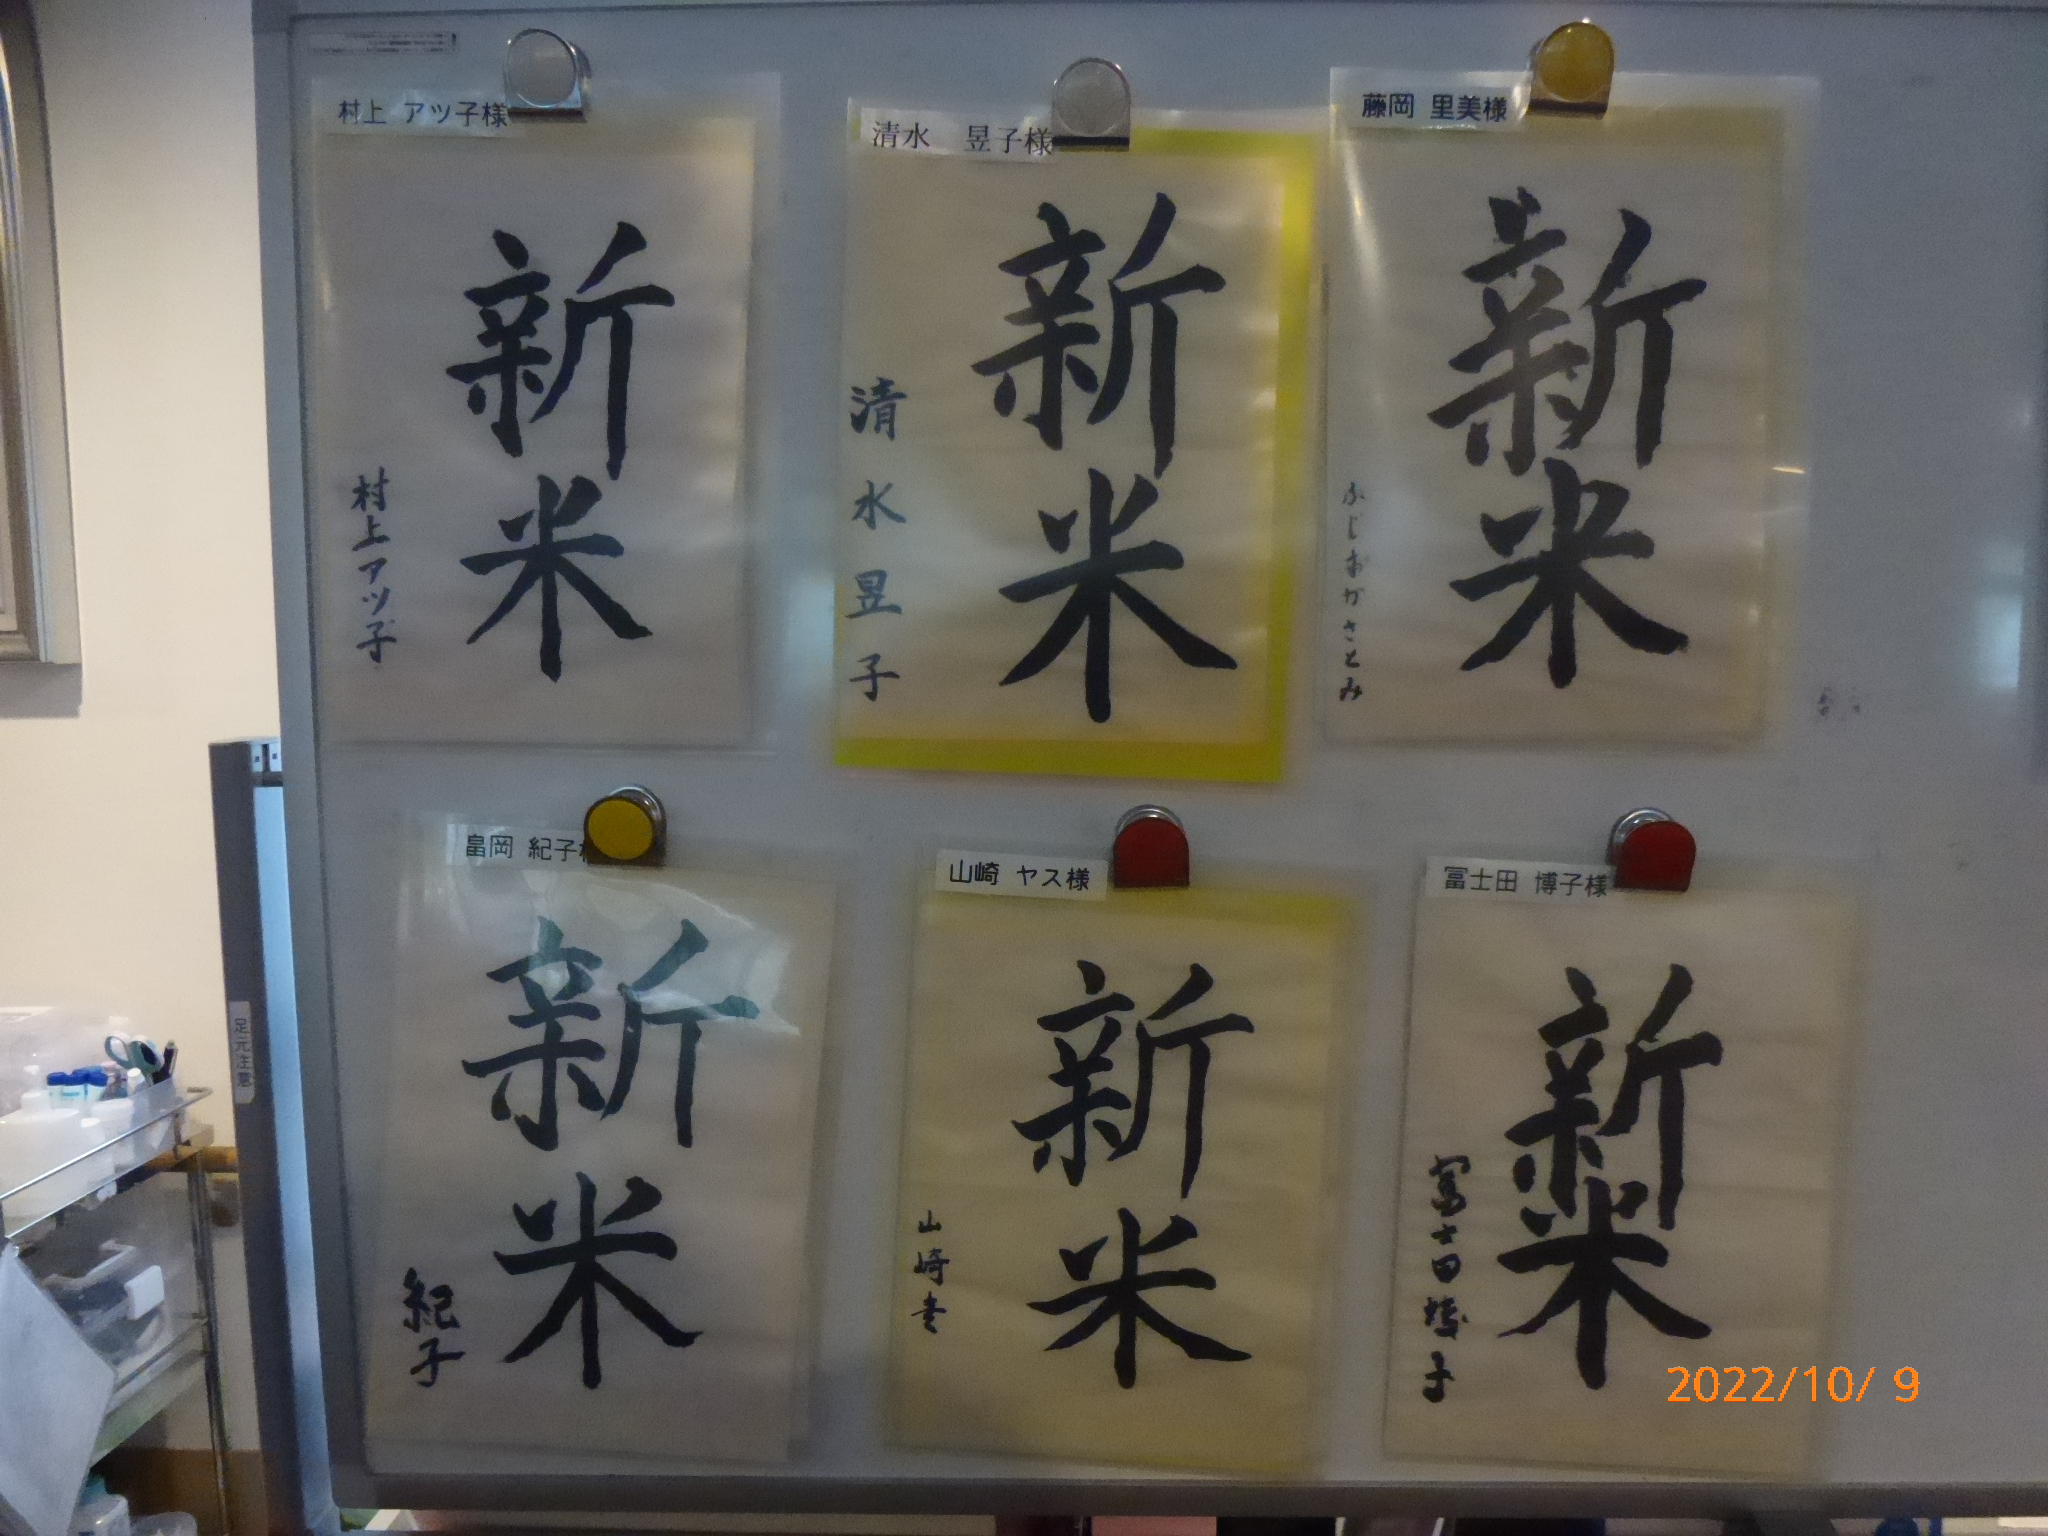 村上 アツ子様
新米
村上アツ子
清水 昱子様
新米
清水昱子
藤岡 里美様
新米
ふじおかさとみ
畠岡 紀子
新米
紀子
山崎 ヤス様
新米
山崎
冨士田 博子様
新米
冨士田博子
足元注意
2022/10/ 9